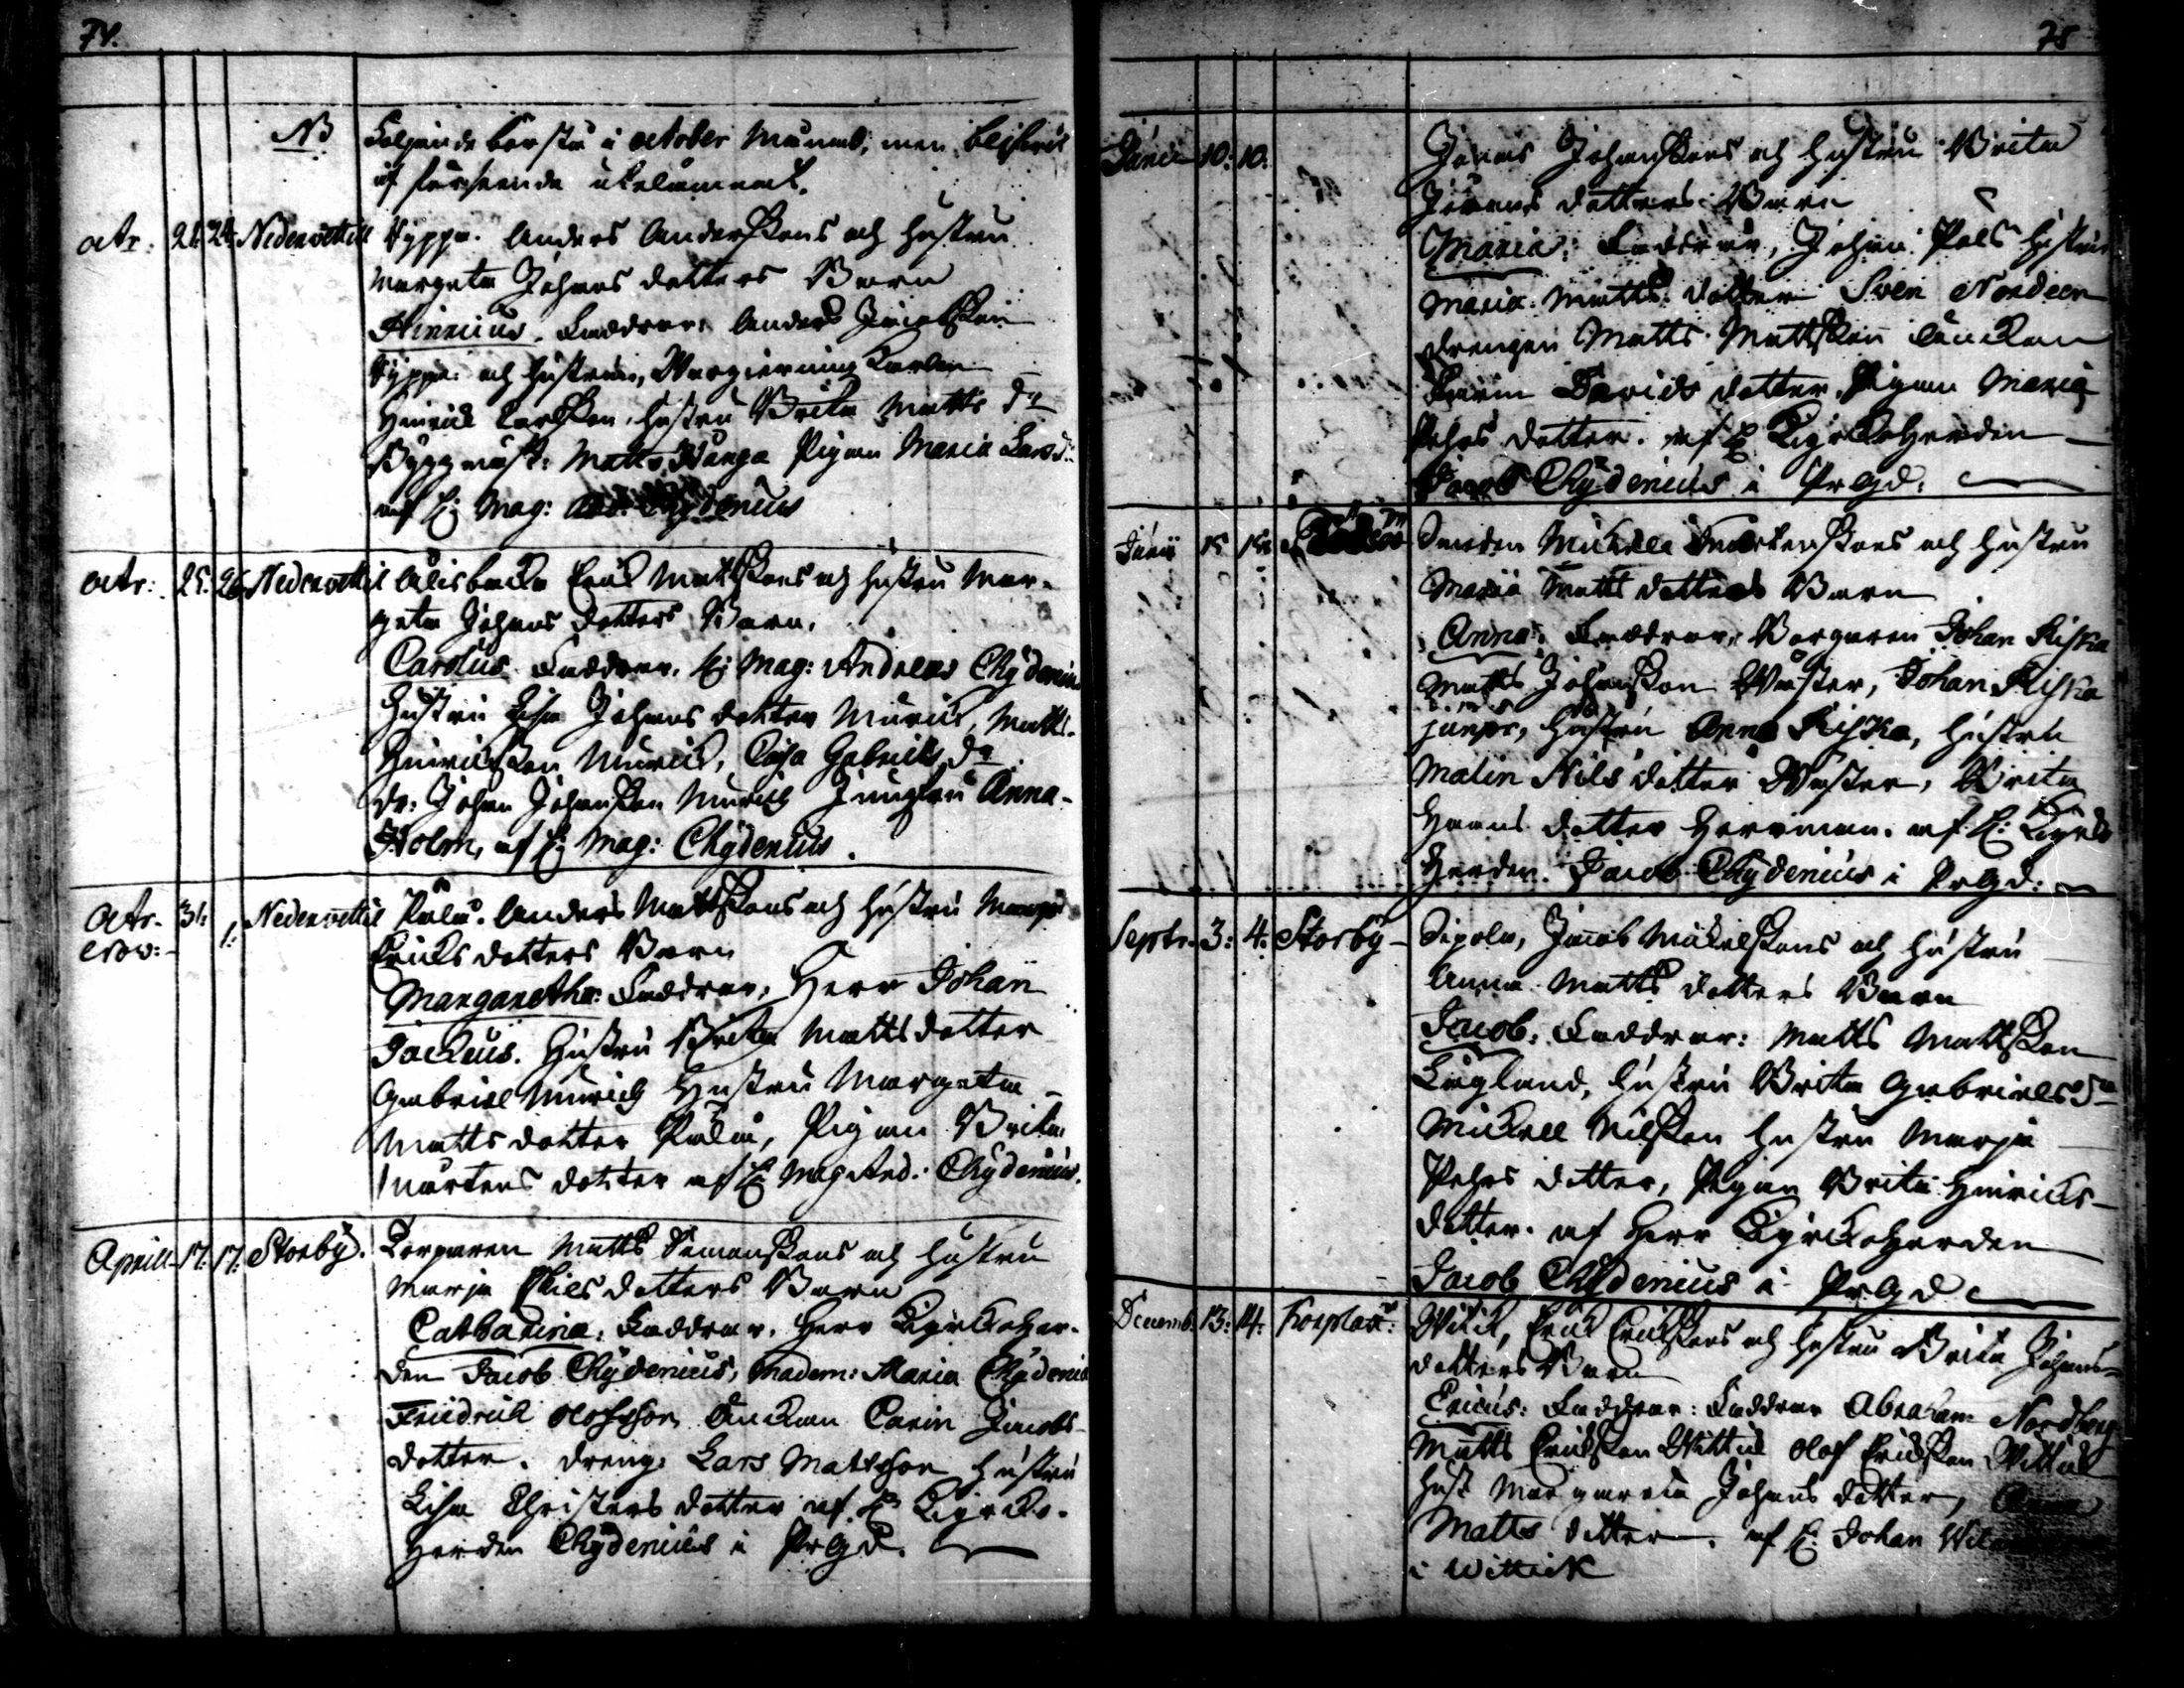 74.
NB Följande borde stå i october Månad, men blifvit
af förseende utelämnat.
octr: 21. 24. Nedervettil Syppe. Anders Andersons och hustru
Margeta Johans dotters Barn
Hinricus. Faddrar. Anders Jacobsson
Syppe och hustru,
Hinrick Carlsson, hustru Brita Matts dr
Byggmäst: Matts Kanga Pigan Maria Larsdr
af H: Mag: And: Chydenius
octr: 25. 26 Nedervettil Erick Mattssons och hustru Mar-
geta Johans dotters Barn.
Carolus. Faddrar. H: Mag: Andreas Chydenius
hustru Lisa Johans dotter Murick, Matts
Hinricksson Murick, Caisa Gabriels dr
dr. Johan Johansson Murick Jungfru Anna
Holm, af H: Mag: Chydenius.
Octr. 31. Nedervettil Pulu. Anders Mattssons och hustru
Nov: 1. Ericks dotters Barn
Margaretha. Faddrar. Herr Johan
Hustru Brita Matts dotter
Gabriel Murick Hustru Margeta
Matts dotter Pulu, Pigan Brita
Mårtens dotter af H: Mag: And: Chydenius.
Aprill 17. 17. Storby. Torparen Matts Simonssons och hustru
Marja Nils dotters Barn
Catharina. Faddrar. Herr Kyrckoher-
den Jacob Chydenius, Madem: Maria Chydenia
Friedrich Olofsson Enckan Carin Jacobs
dotter. dreng: Lars Matsson hustru
Lisa Christers dotter af H: Kyrcko-
herden Chydenius i Prgd.
75
Junii 10. 10. Jonas Johanssons och hustru Brita
Jörans dotters Barn
Maria: Faddrar, Johan Påls hustru
Maria Matts dotter Sven Nordeen
drengen Matts Mattsson Enckan
Karin Davids dotter, Pigan Maria
Pehrs dotter. af H: Kyrckoherden
Jacob Chydenius i Prgd.
Junii 15 15. Smeden Mickell och hustru
Maria Matts dotters Barn
Anna: Faddrar, Borgaren Johan Riska
Matts Johansson Wäster, Johan Riska
junior, hustru Anna Riska, hustru
Malin Nils dotter Wäster, Brita
Hans dotter Herrman. af H: Kyrko
Herden Jacob Chydenius i Prgd.
Septr. 3: 4. Storby Sipola, Jacob Mickelssons och hustru
Anna Matts dotters Barn
Jacob: Faddrar: Matts Mattsson
hustru Brita Gabriels dr
Mickell Nilsson hustru Marja
Pehrs dotter, Pigan Brita Hinricks
dotter. af Herr Kyrckoherden
Jacob Chydenius i Prgd
Decemb. 13. 14. Korplax: Witick, Erick Ericksons och hustru Brita Johans
dotters Barn
Ericus: Faddrar: Faddrar Abraham Nordberg
Matts Ericksson Wittick Olof Ericksson Wittick
hust Margareta Johans dotter, Anna
Matts dotter. af H: Johan
i Wittick